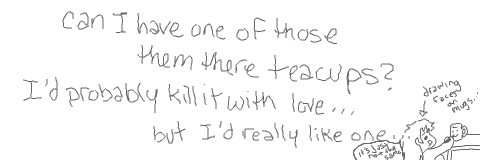 can I have one of those
them there teacups?
I'd probably kill it with love...
but I'd really like one...
drawing
faces
on
mugs...
it's just
not the
same